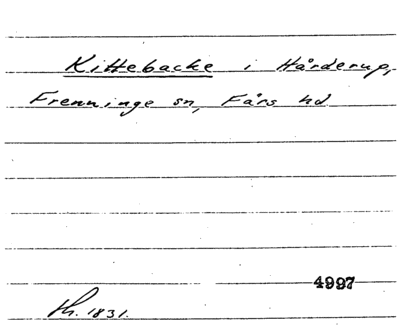 Kittebacke i Hårderup,
Frenninge sn, Färs hd
4997
th. 1831.